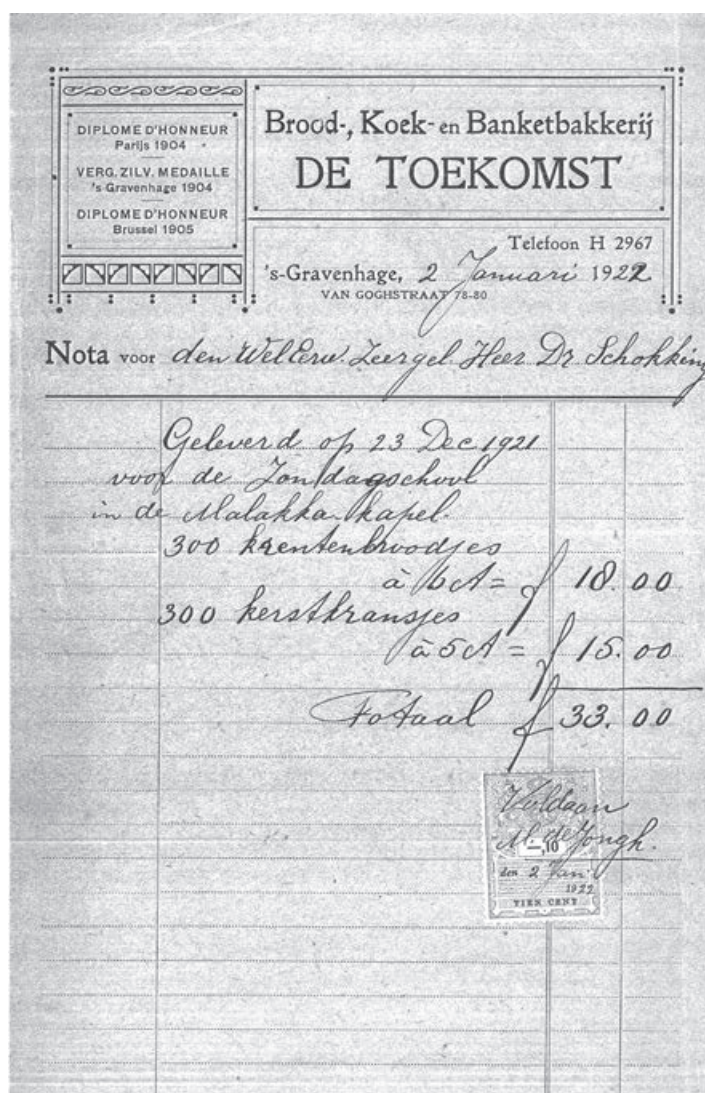 DIPLOME D'HONNEUR
Parijs 1904
VERG. ZILV. MEDAILLE
's Gravenhage 1904
DIPLOME D'HONNEUR
Brussel 1905
Brood-, Koek- en Banketbakkerij
DE TOEKOMST
Telefoon H 2967
's-Gravenhage, 2 Januari 1922
VAN GOGHSTRAAT 78-80
Nota voor den WelEerw. Zeergel. Heer Dr. Schokking
Geleverd op 23 Dec 1921
voor de Zondagschool
in de Malakka kapel.
300 krentenbroodjes
à 6 ct = f 18.00
300 kerstkransjes
à 5 ct = f 15.00
Totaal f 33.00
Voldaan
M. de Jongh.
-,10
den 2 Jan.
1922
TIEN CENT